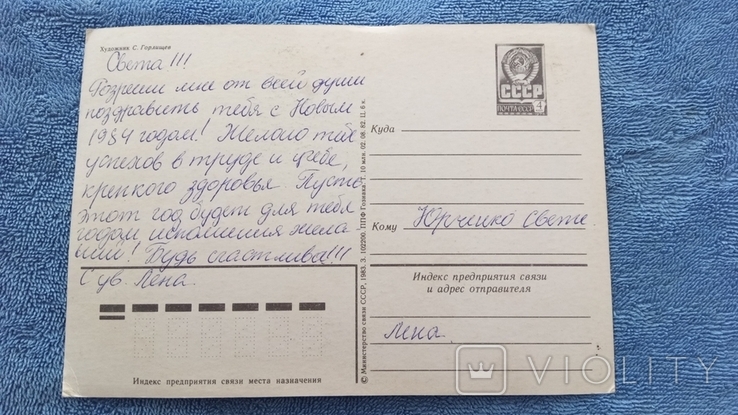 Художник С. Горлищев
Света!!!
Разреши мне от всей души
поздравить тебя с Новым
1984 годом! Желаю тебе
успехов в труде и учебе,
крепкого здоровья. Пусть
этот год будет для тебя
годом исполнения жела
ний! Будь счастлива!!!
С ув. Лена.
Индекс предприятия связи места назначения
© Министерство связи СССР, 1983. З. 102200. ППФ Гознака. т. 10 млн. 02. 08. 82. Ц. 6 к.
СССР
ПОЧТА СССР
4
Куда
Кому Юрченко Свете.
Индекс предприятия связи
и адрес отправителя
Лена.
VIOLITY